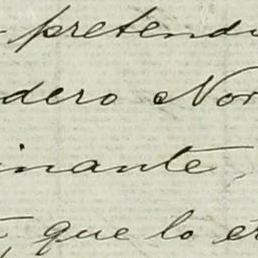 pretendi
dero Nor
inante
, que lo er